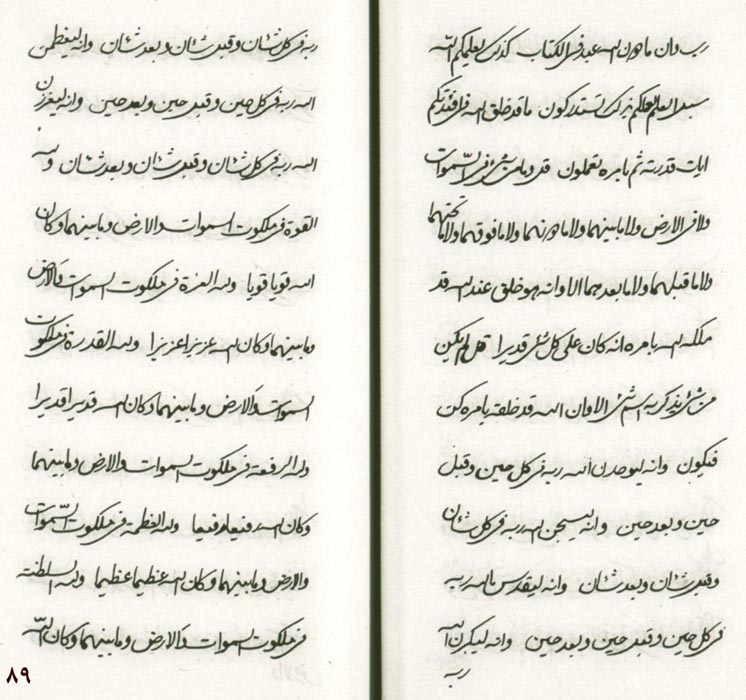 رب وان ما دون الله عبد فى الكتاب كذلك يعلمكم الله
سبيل العلم لعلكم بذلك تستدركون ما قد خلق الله فى افئدتكم
ايات قدرته ثم بامره تعملون قل وما من شئ فى السّموات
ولا فى الارض ولا ما بينهما ولا ما دونهما ولا ما فوقهما ولا ما تحتهما
ولا ما قبلهما ولا ما بعدهما الا وانه هو خلق عند الله قد
ملكه الله بامره انه كان على كل شئ قديرا قل لم يكن
من شئ يذكر به اسم شئ الا وان الله قد خلقه بامره كن
فيكون وانه ليوحدن الله ربه فى كل حين وقبل
حين وبعد حين وانه ليسبحن الله ربه فى كل شان
وقبل شان وبعد شان وانه ليقدسن الله ربه
فى كل حين وقبل حين وبعد حين وانه ليكبرن الله
ربه
ربه فى كل شان وقبل شان وبعد شان وانه ليعظمن
الله ربه فى كل حين وقبل حين وبعد حين وانه ليعززن
الله ربه فى كل شان وقبل شان وبعد شان ولله
القوة فى ملكوت السموات والارض وما بينهما وكان
الله قويا قويا ولله العزة فى ملكوت السموات والارض
وما بينهما وكان الله عزيزا عزيزا ولله القدرة فى ملكوت
السموات والارض وما بينهما وكان الله قديرا قديرا
ولله الرفعة فى ملكوت السموات والارض وما بينهما
وكان الله رفيعا رفيعا ولله العظمة فى ملكوت السّموات
والارض وما بينهما وكان الله عظيما عظيما ولله السلطنة
فى ملكوت السموات والارض وما بينهما وكان الله
٨٩